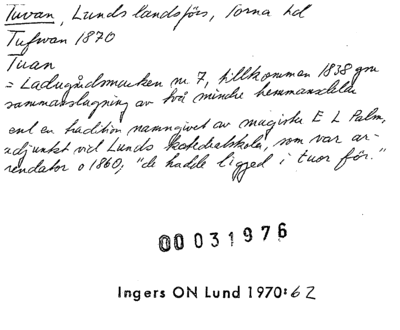 Tuvan, Lunds landsförs, Torna hd
Tufwan 1870
Tuan
= Ladugårdsmarken nr 7, tillkommen 1838 gm
sammanslagning av två mindre hemmansdelar
enl en tradition namngivet av magister E L Palm,
adjunkt vid Lunds katedralskola, som var ar-
rendator o 1860; "de hadde ligged i tuor för."
00031976
Ingers ON Lund 1970:62